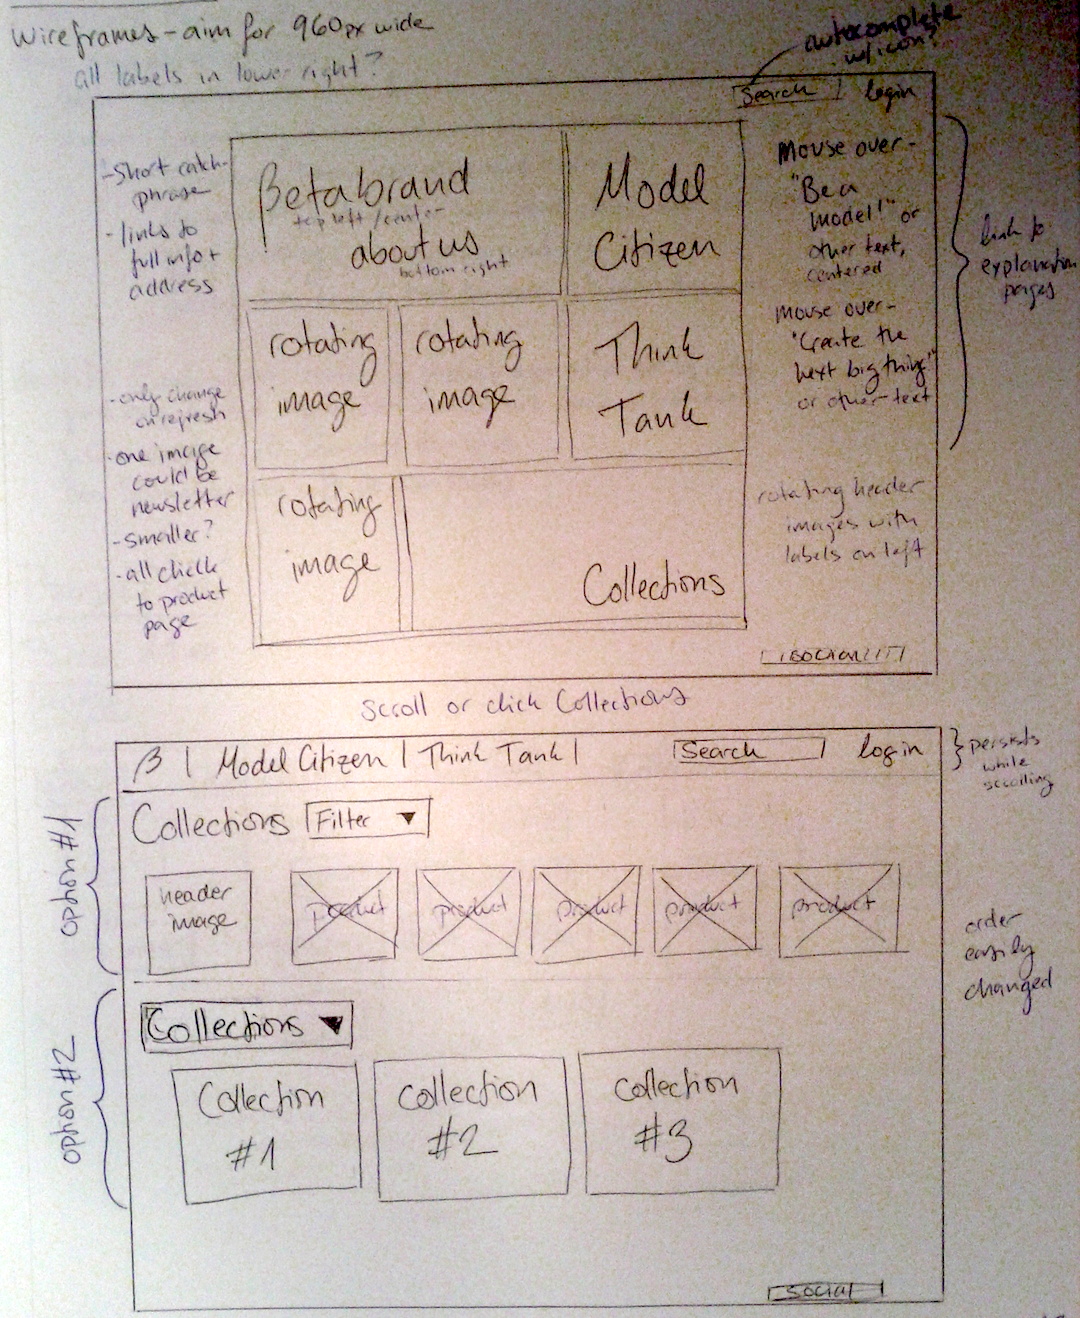 Wireframes - aim for 960px wide
all labels in lower right?
autocomplete
w/icon?
Search
login
- short catch-
phrase
- links to
full info +
address
Betabrand
top left / center
about us
bottom right
Model
Citizen
Mouse over -
"Be a
model!" or
other text,
centered
link to
explanation
pages
rotating
image
rotating
image
Think
Tank
Mouse over -
"Create the
next big thing!"
or other text
- only change
on refresh
- one image
could be
newsletter
- smaller?
- all click
to product
page
rotating
image
Collections
rotating header
images with
labels on left
SOCIAL
Scroll or click Collections
β | Model Citizen | Think Tank |
Search
login
persists
while
scrolling
option #1
Collections
Filter ▼
header
image
product
product
product
product
product
order
easily
changed
option #2
Collections ▼
Collection
#1
Collection
#2
Collection
#3
SOCIAL